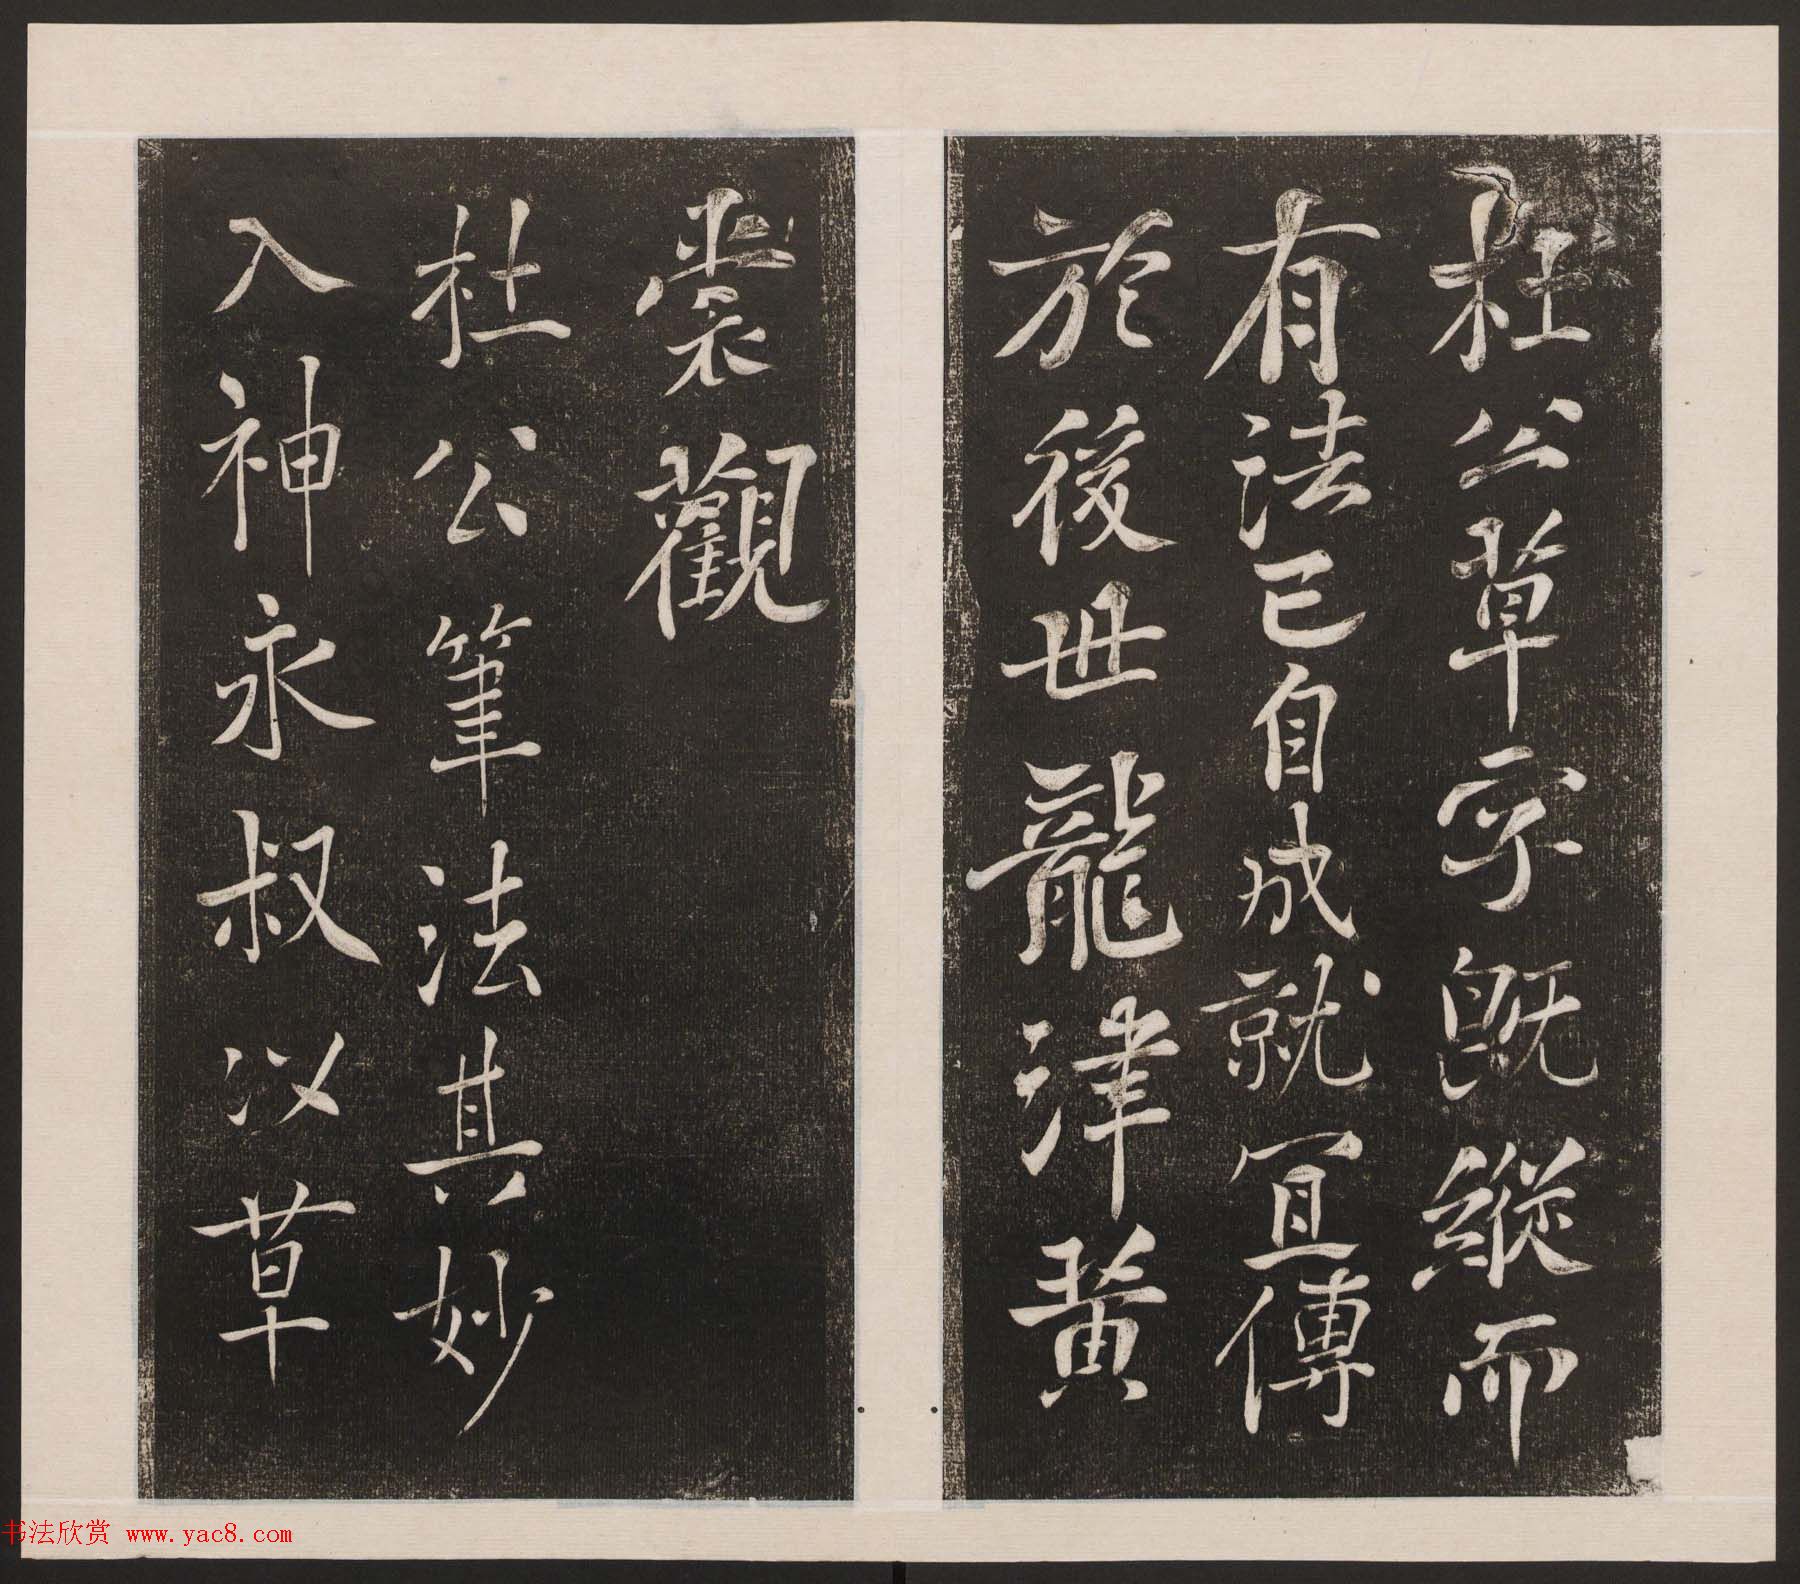 杜公草字既縱而
有法已自成就宜傳
於後世龍津黃
裳觀
杜公筆法其妙
入神永叔以草
书法欣赏 www.yac8.com